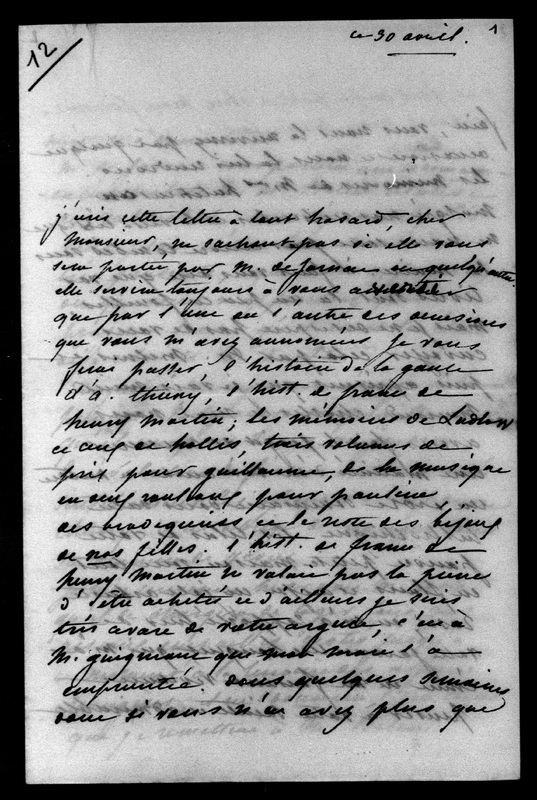 12
1
ce 30 avril.
j'ecris cette lettre à tout hasard, cher
Monsieur, ne sachant pas si elle vous
sera portée par M. de Jarnac ou quelqu'autre.
elle servira toujours à vous avertir
que par l'une ou l'autre des occasions
que vous m'avez annoncées je vous
ferai passer l'histoire de la gaule
d'a. thierry, l'hist. de france de
henry martin, les mémoires de Ludlow
ceux de hollis, trois volumes de
prix pour guillaume, de la musique
en deux rouleaux pour pauline,
des brodequins et le reste des bijoux
de nos filles. l'hist. de france de
henry martin ne valait pas la peine
d'être achetée et d'ailleurs je suis
très avare de votre argent. c'est à
M. guigniaut que mon mari l'a
empruntée. dans quelques semaines
donc si vous n'en avez plus que